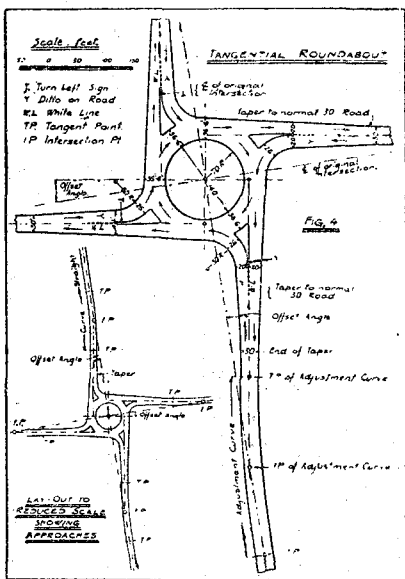 Scale - feet.
50 0 50 100 150
TANGENTIAL ROUNDABOUT
Turn Left Sign
Y Ditto on Road
W.L White Line
T.P. Tangent Point.
I P Intersection Pt
℄ of original
intersection
Taper to normal 30 Road
℄ of original
intersection
Offset
Angle
FIG. 4
Taper to normal
30 Road
Offset Angle
End of Taper
T P of Adjustment Curve
I P of Adjustment Curve
Adjustment Curve
I.P
Straight
Curve
T.P
I.P
T.P
Offset Angle
Taper
T.P
I.P
Offset Angle
T.P.
T.P
I.P
T.P
LAY-OUT TO
REDUCED SCALE
SHOWING
APPROACHES